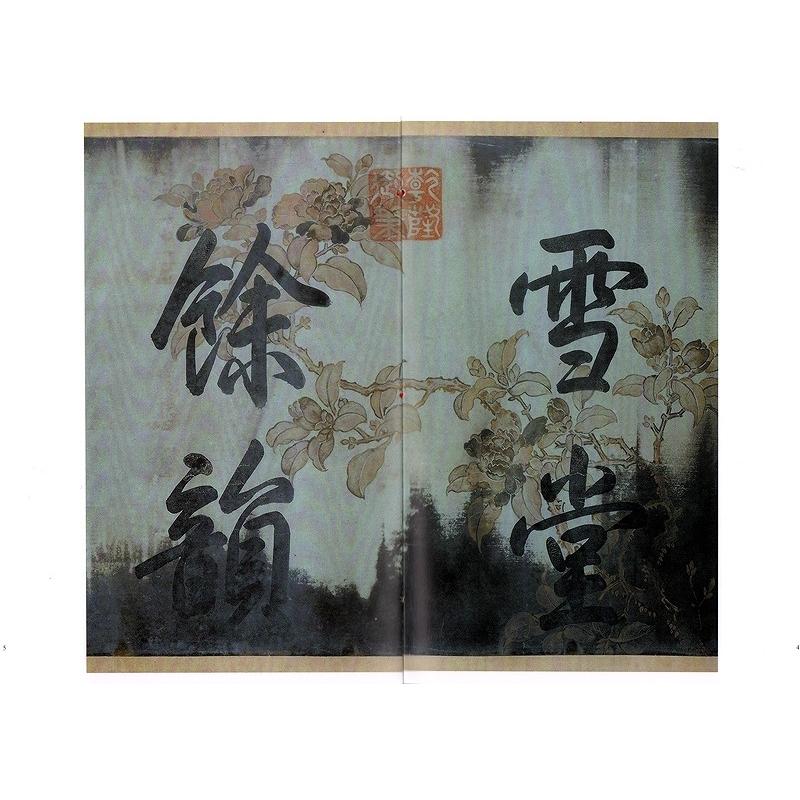 雪堂
餘韻
乾隆御筆
4
5